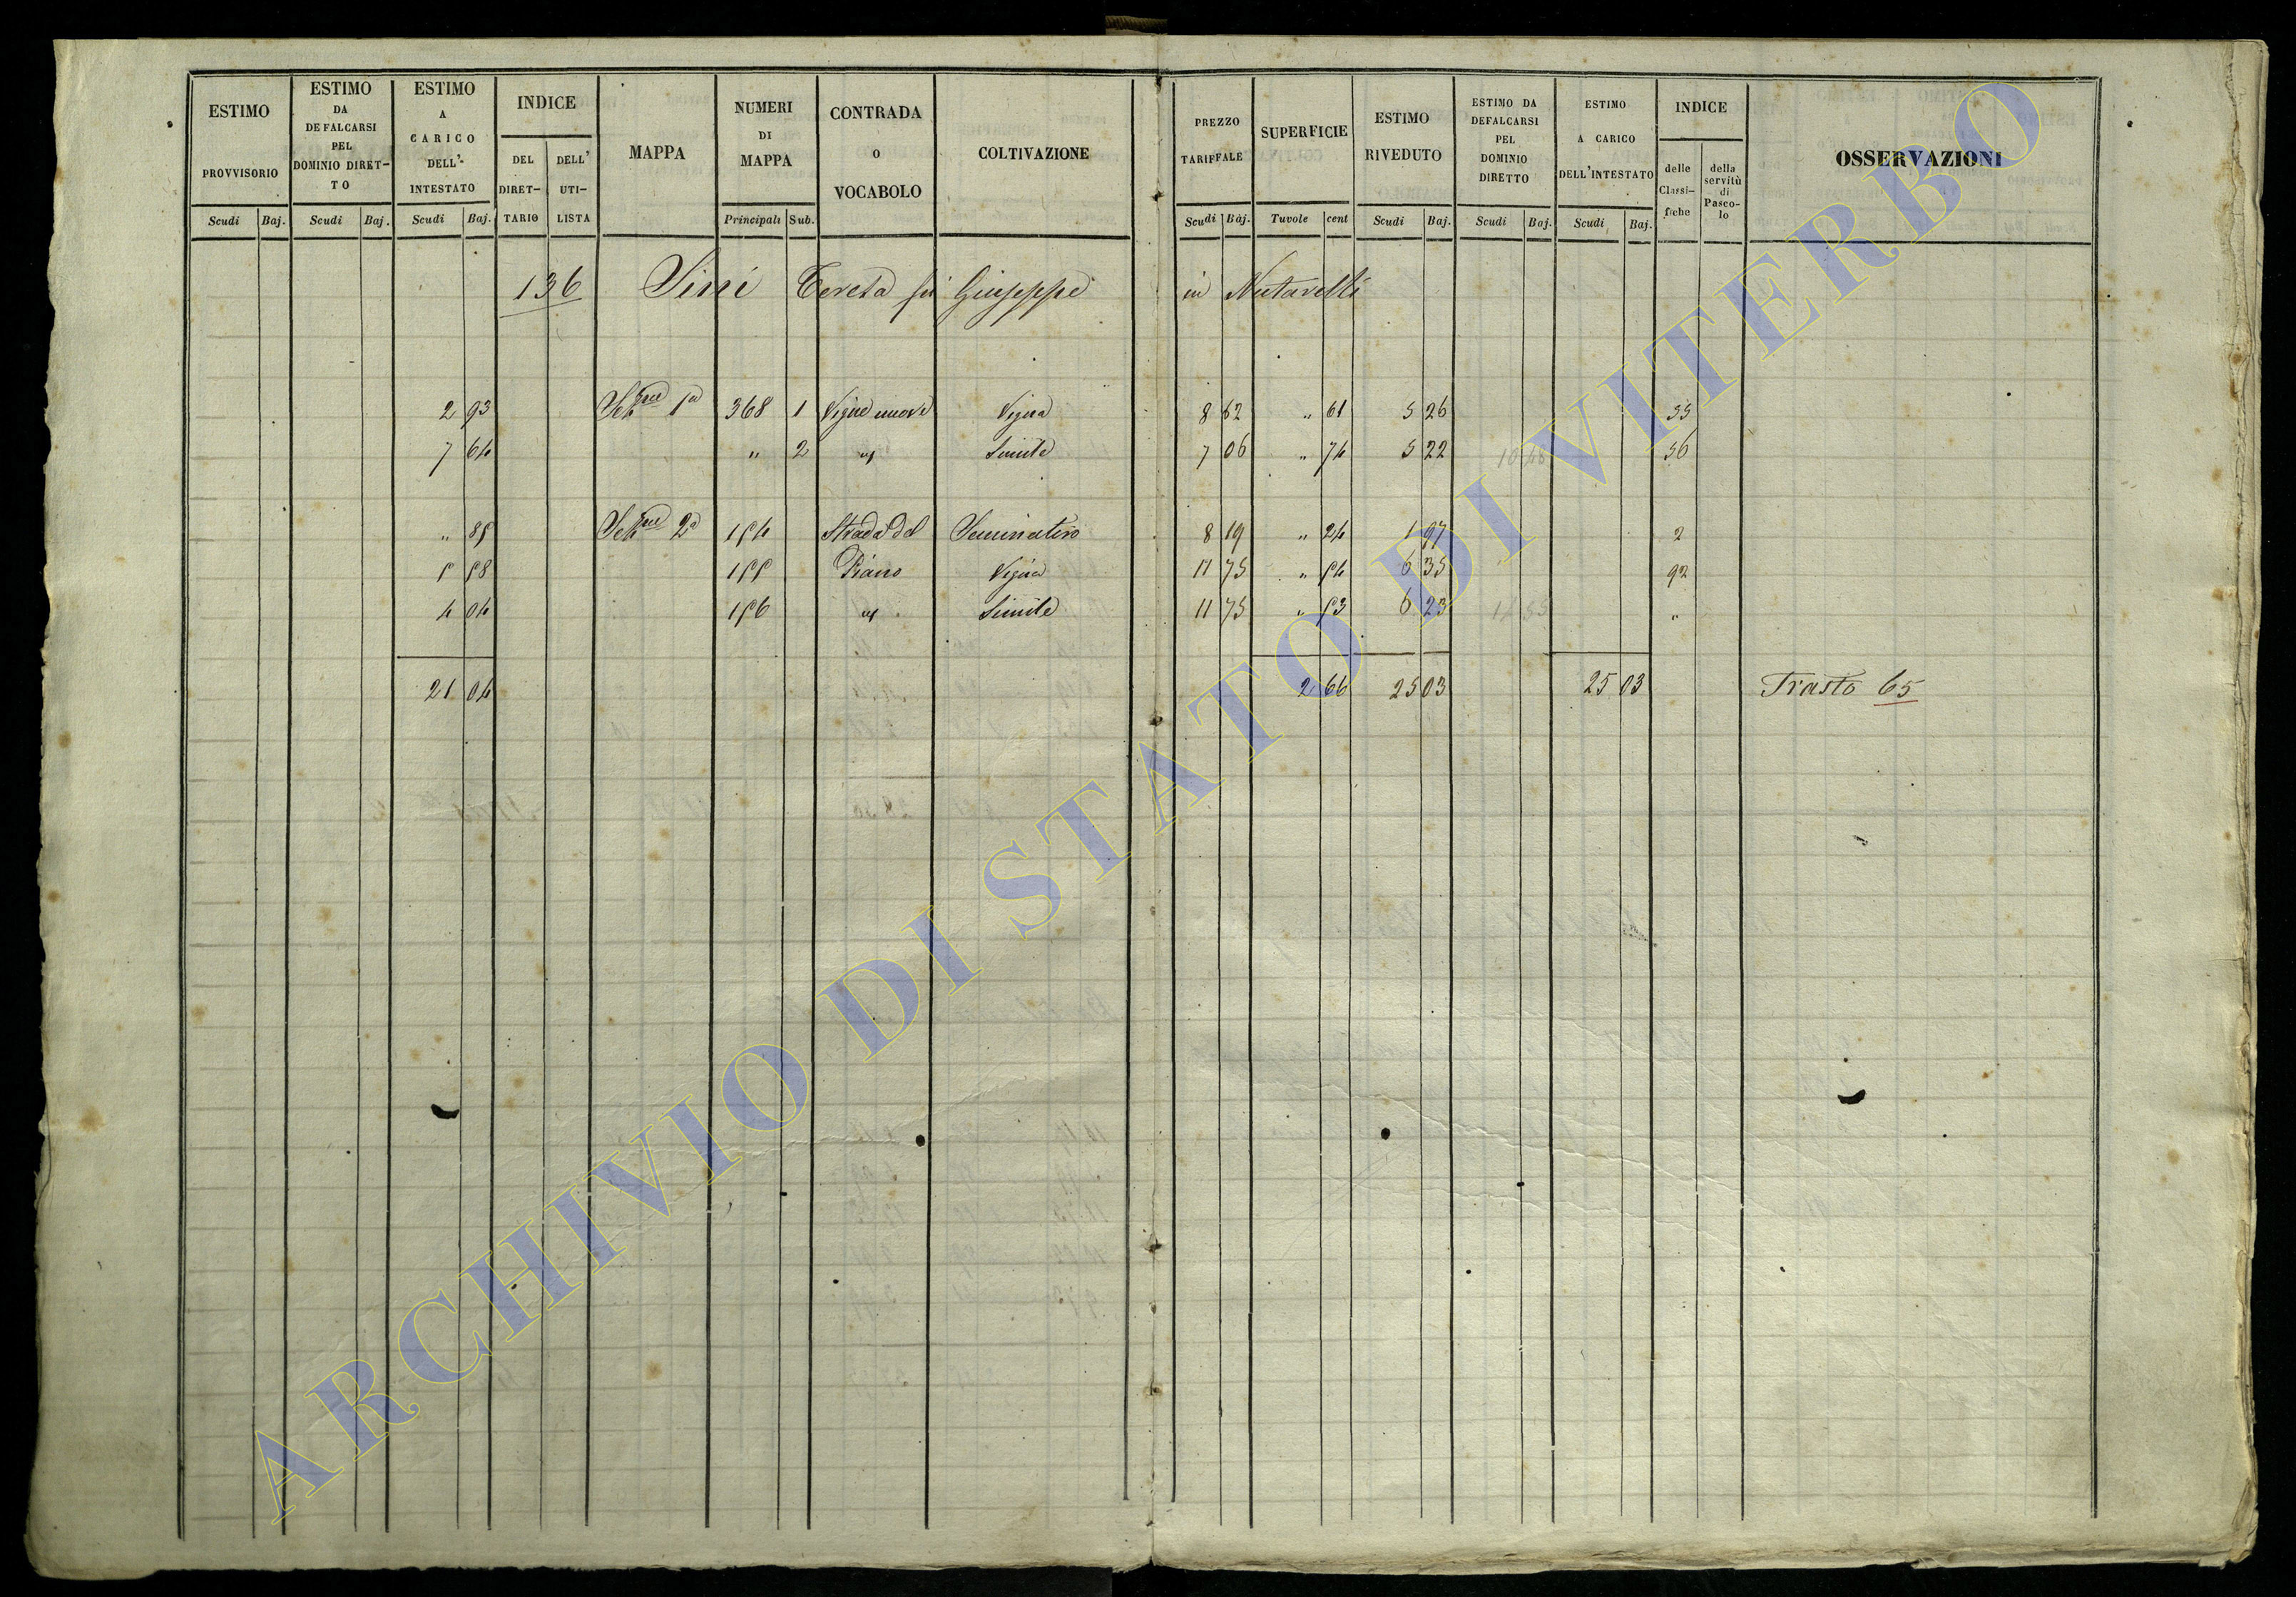 ESTIMO PROVVISORIO Scudi Baj.
ESTIMO DA DEFALCARSI PEL DOMINIO DIRET-TO Scudi Baj.
ESTIMO A CARICO DELL'INTESTATO Scudi Baj.
INDICE DEL DIRET-TARIO DELL' UTI-LISTA
MAPPA
NUMERI DI MAPPA Principali Sub.
CONTRADA O VOCABOLO
COLTIVAZIONE
PREZZO TARIFFALE Scudi Baj.
SUPERFICIE Tavole cent
ESTIMO RIVEDUTO Scudi Baj.
ESTIMO DA DEFALCARSI PEL DOMINIO DIRETTO Scudi Baj.
ESTIMO A CARICO DELL'INTESTATO Scudi Baj.
INDICE delle Classi-fiche della servitù di Pasco-lo
OSSERVAZIONI
136 Sini Teresa fu Giuseppe in
2 93 Sez.ne 1a 368 1 Vigne nuove Vigna 8 62 " 61 5 26 55
7 64 " 2 Simile 7 06 " 74 5 22 56
" 85 Sez.ne 2a 154 Strada del Seminativo 8 19 " 24 1 97 2
5 58 155 Piano Vigna 11 75 " 54 6 35 92
4 04 156 Simile 11 75 " 53 6 23 "
21 04 2 66 25 03 25 03 Trasto 65
ARCHIVIO DI STATO DI VITERBO